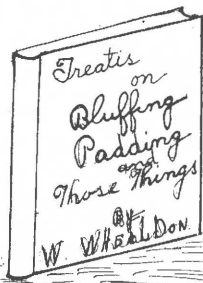 Treatis
on
Bluffing
Padding
and
Those Things
By
W. WHEALDON